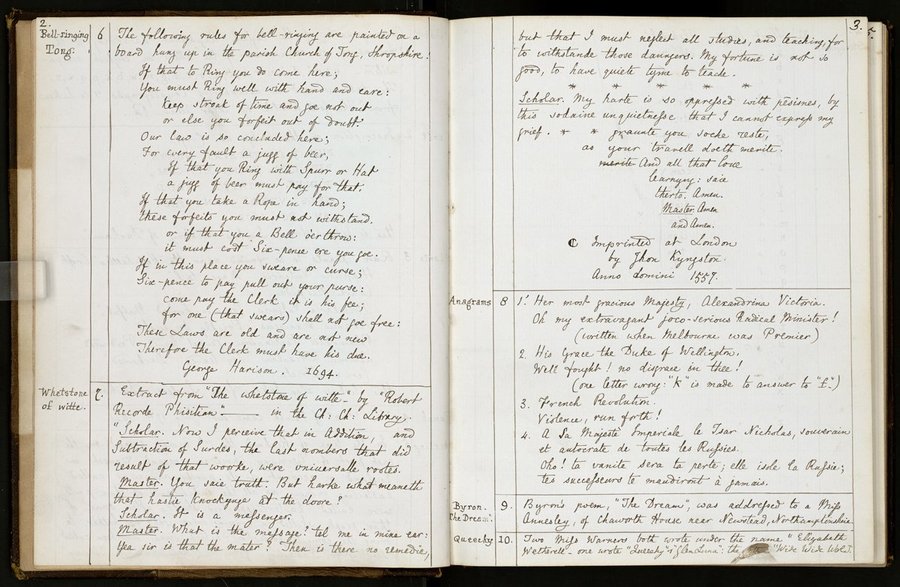 2.
Bell-ringing
Tong.
6
The following rules for bell-ringing are painted on a
board hung up in the parish Church of Tong, Shropshire:
If that to Ring you do come here;
You must Ring well with hand and eare:
Keep stroak of time and goe not out
or else you forfeit out of Doubt.
Our law is so concluded here;
For every fault a jugg of beer,
If that you Ring with Spurr or Hat
a jugg of beer must pay for that.
If that you take a Rope in hand;
these forfeits you must not withstand.
or if that you a Bell o'er throw:
it must cost Six-pence ere you goe.
If in this place you sweare or curse;
Six-pence to pay pull out your purse:
come pay the Clerk it is his fee;
for one (that swears) shall not goe free:
These Laws are old and are not new
Therefore the Clerk must have his due.
George Harison. 1694.
"Whetstone
of witte.
7.
Extract from "The whetstone of witte" by "Robert
Recorde Phisitian" — in the Ch: Ch: Library.
"Scholar. Now I perceive that in Addition, and
Subtraction of Surdes, the last nombers that did
result of that woorke, were universalle rootes.
Master. You saie truth. But harke what meaneth
that hastie knockynge at the doore?
Scholar. It is a messenger.
Master. What is the message? tel me in mine ear:
Yea sir is that the mater? Then is there no remedie,
3.
5.
but that I must neglect all studies, and teaching, for
to withstande those daungers. My fortune is not so
good, to have quiete tyme to teache.
* * * * *
Scholar. My harte is so oppressed with pesisnes, by
this sodaine unquietnesse that I cannot express my
grief. * * graunte you soche reste,
as your travell doeth merite.
merite And all that love
learnyng: saie
therto. Amen.
Master. Amen
and Amen.
Imprinted at London
by Jhon Kyngston.
Anno domini 1557.
Anagrams
8
1. Her most gracious Majesty, Alexandrina Victoria.
Oh my extravagant joco-serious Radical Minister!
(written when Melbourne was Premier)
2. His Grace the Duke of Wellington.
Well fought! no disgrace in thee!
(one letter wrong: "k" is made to answer to "t".)
3. French Revolution.
Violence, run forth!
4. A Sa Majesté Imperiale le Tsar Nicholas, souverain
et autocrate de toutes les Russies.
Oho! ta vanite sera ta perte; elle isole la Russie;
tes successeurs te maudiront à jamais.
Byron.
The Dream.
9.
Byron's poem, "The Dream", was addressed to a Miss
Annesley, of Chaworth House near Newstead, Northamptonshire
Queechy
10.
Two Miss Warners both wrote under the name "Elizabeth
Wetherell" one wrote "Queechy" & "Glen Luna": the "Wide Wide World".